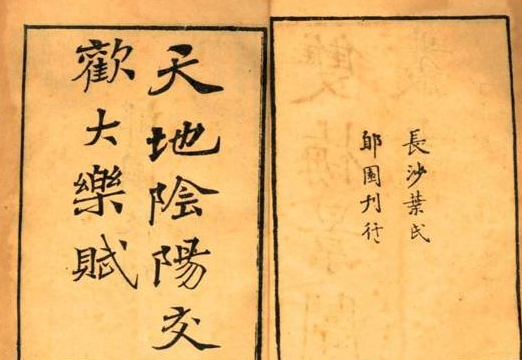 長沙葉氏
郋園刊行
天地陰陽交
歡大樂賦